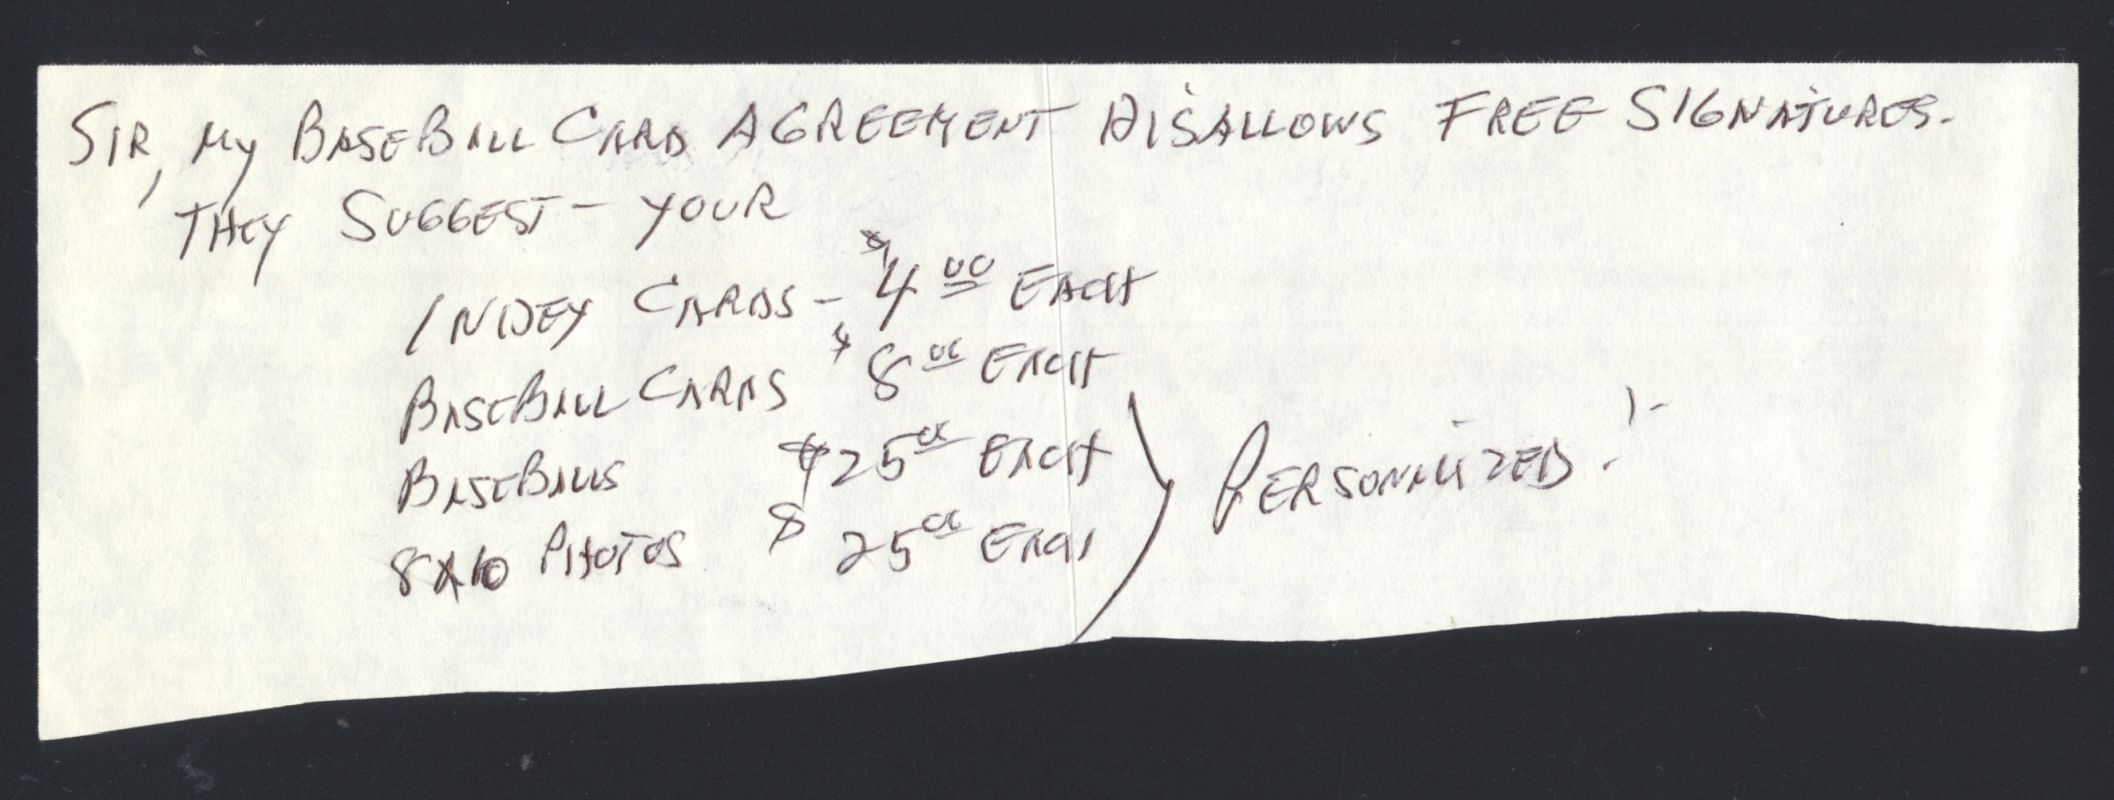 SIR, My BASEBALL CARD AGREEMENT DISALLOWS FREE SIGNATURES.
THEY SUGGEST - YOUR
INDEX CARDS - $4.00 EACH
BASEBALL CARDS $8.00 EACH
BASEBALLS $25.00 EACH
8X10 PHOTOS $25.00 EACH
PERSONALIZED!